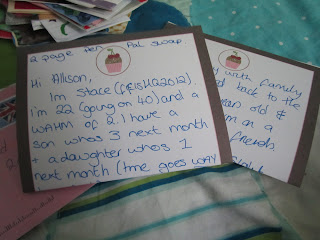 2 page Pal Swap
Hi Allison,
Im Stace (
i'm 22 (going on 40) and a
WAHM of 2. I have a
son who's 3 next month
+ a daughter who's 1
next month (time goes way
with family
back to the
old &
on a
friends